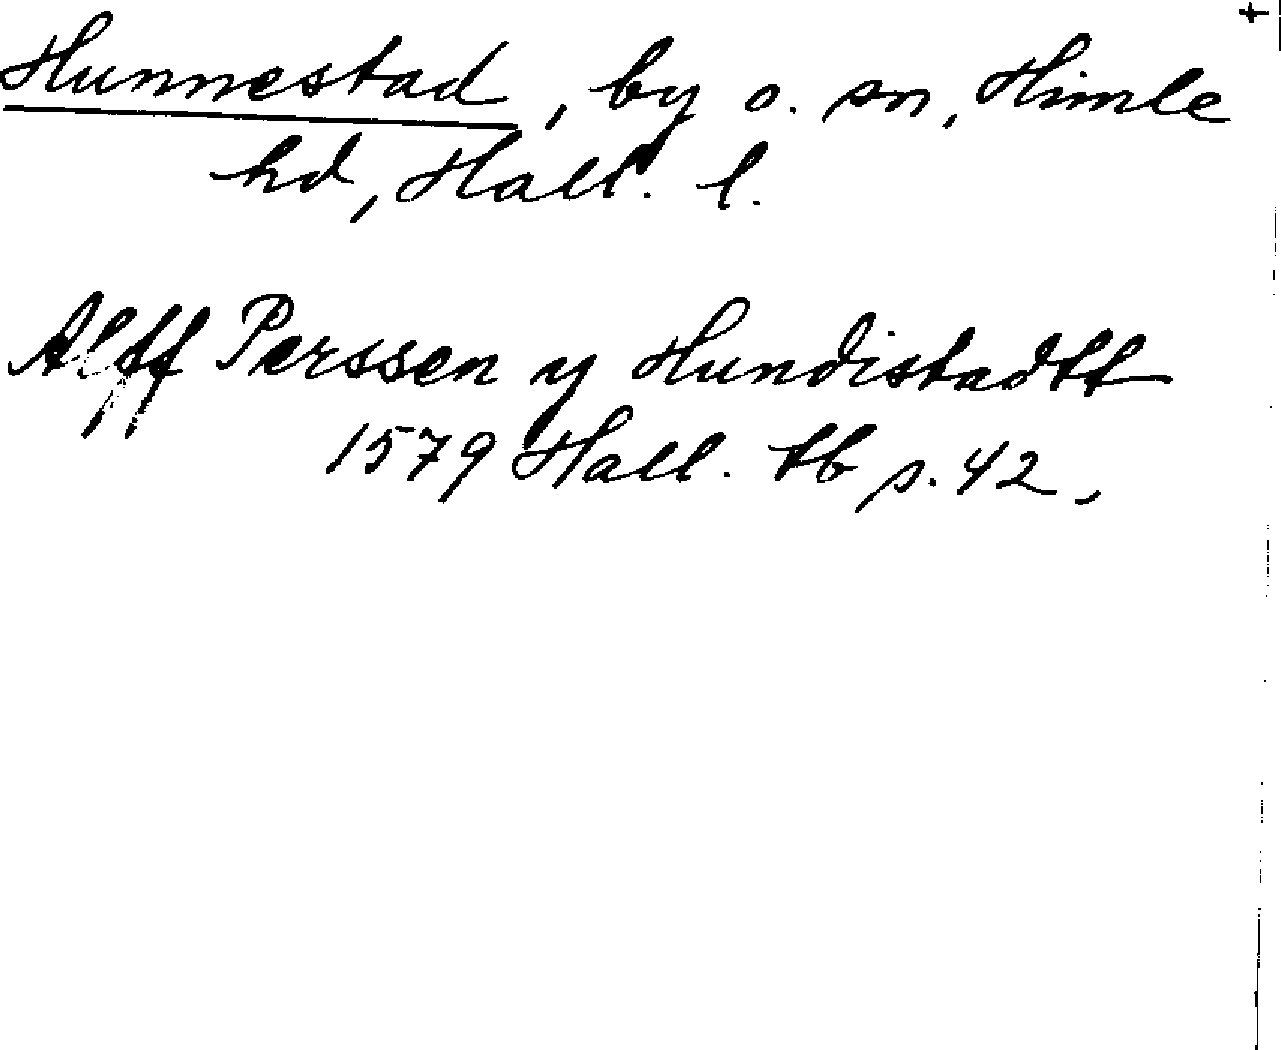 Hunnestad, by o. sn, Himle
hd, Hall. l.
Alff Perssen y Hundistadtt
1579 Hall. tb p. 42,